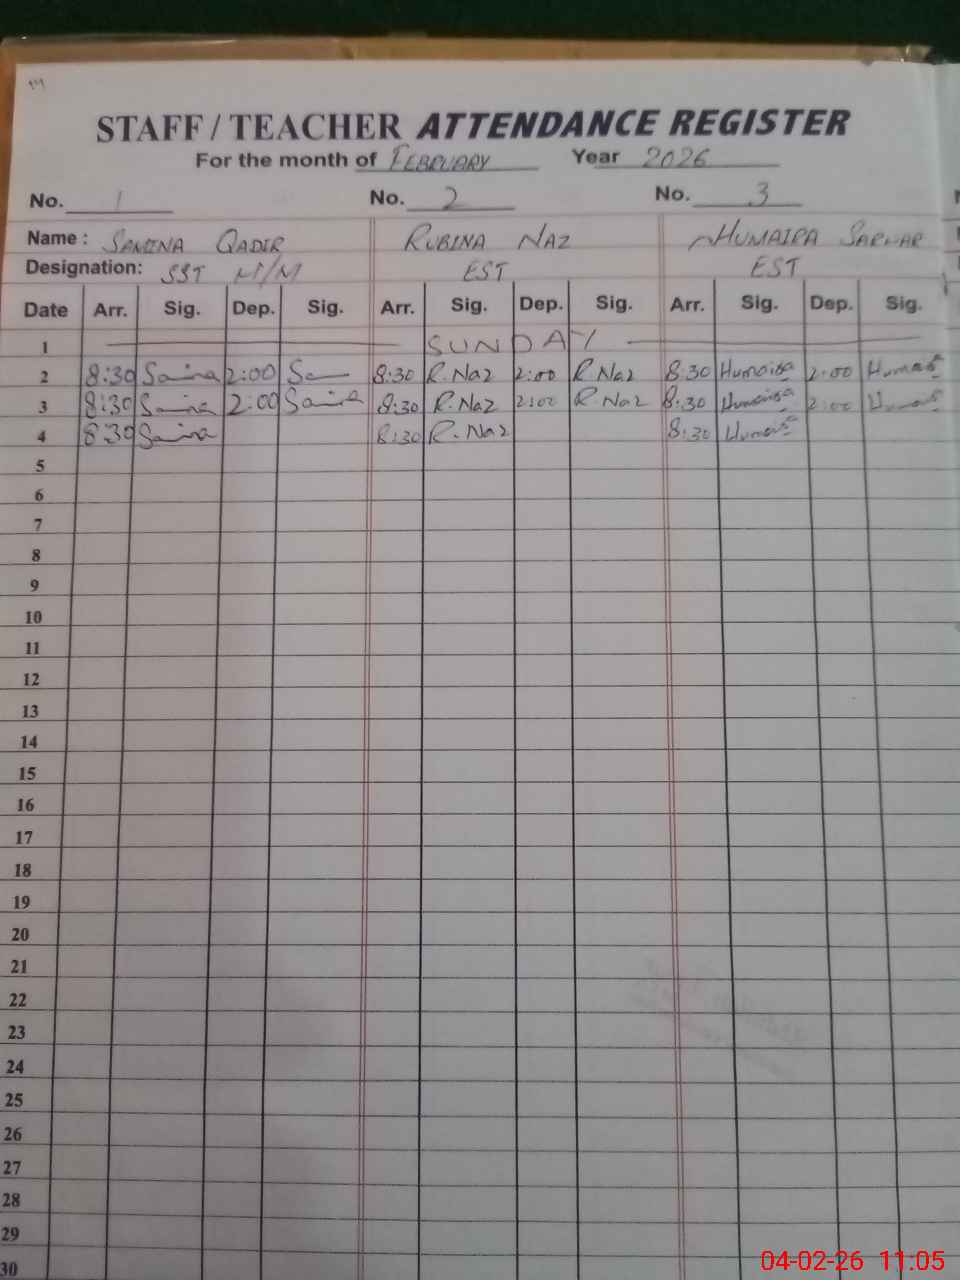 STAFF / TEACHER ATTENDANCE REGISTER
For the month of FEBRUARY Year 2026
No. 1 No. 2 No. 3
Name : SAMINA QADIR RUBINA NAZ HUMAIRA SARWAR
Designation: SST EST EST
Date Arr. Sig. Dep. Sig. Arr. Sig. Dep. Sig. Arr. Sig. Dep. Sig.
1 SUNDAY
2 8:30 2:00 8:30 R.Naz 2:00 R.Naz 8:30 Humaira 2:00
3 8:30 2:00 8:30 R.Naz 2:00 R.Naz 8:30 Humaira 2:00
4 8:30 8:30 R.Naz 8:30
5
6
7
8
9
10
11
12
13
14
15
16
17
18
19
20
21
22
23
24
25
26
27
28
29
30
04-02-26 11:05